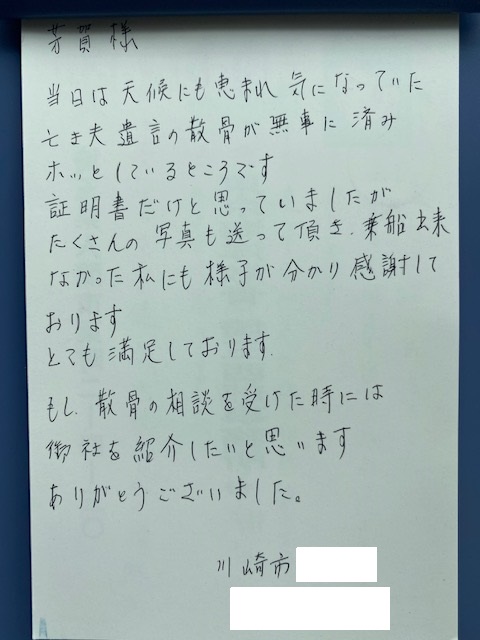 芳賀様
当日は天候にも恵まれ気になっていた
亡き夫遺言の散骨が無事に済み
ホッとしているところです
証明書だけと思っていましたが
たくさんの写真も送って頂き、乗船出来
なかった私にも様子が分かり感謝して
おります
とても満足しております。
もし、散骨の相談を受けた時には
御社を紹介したいと思います
ありがとうございました。
川崎市